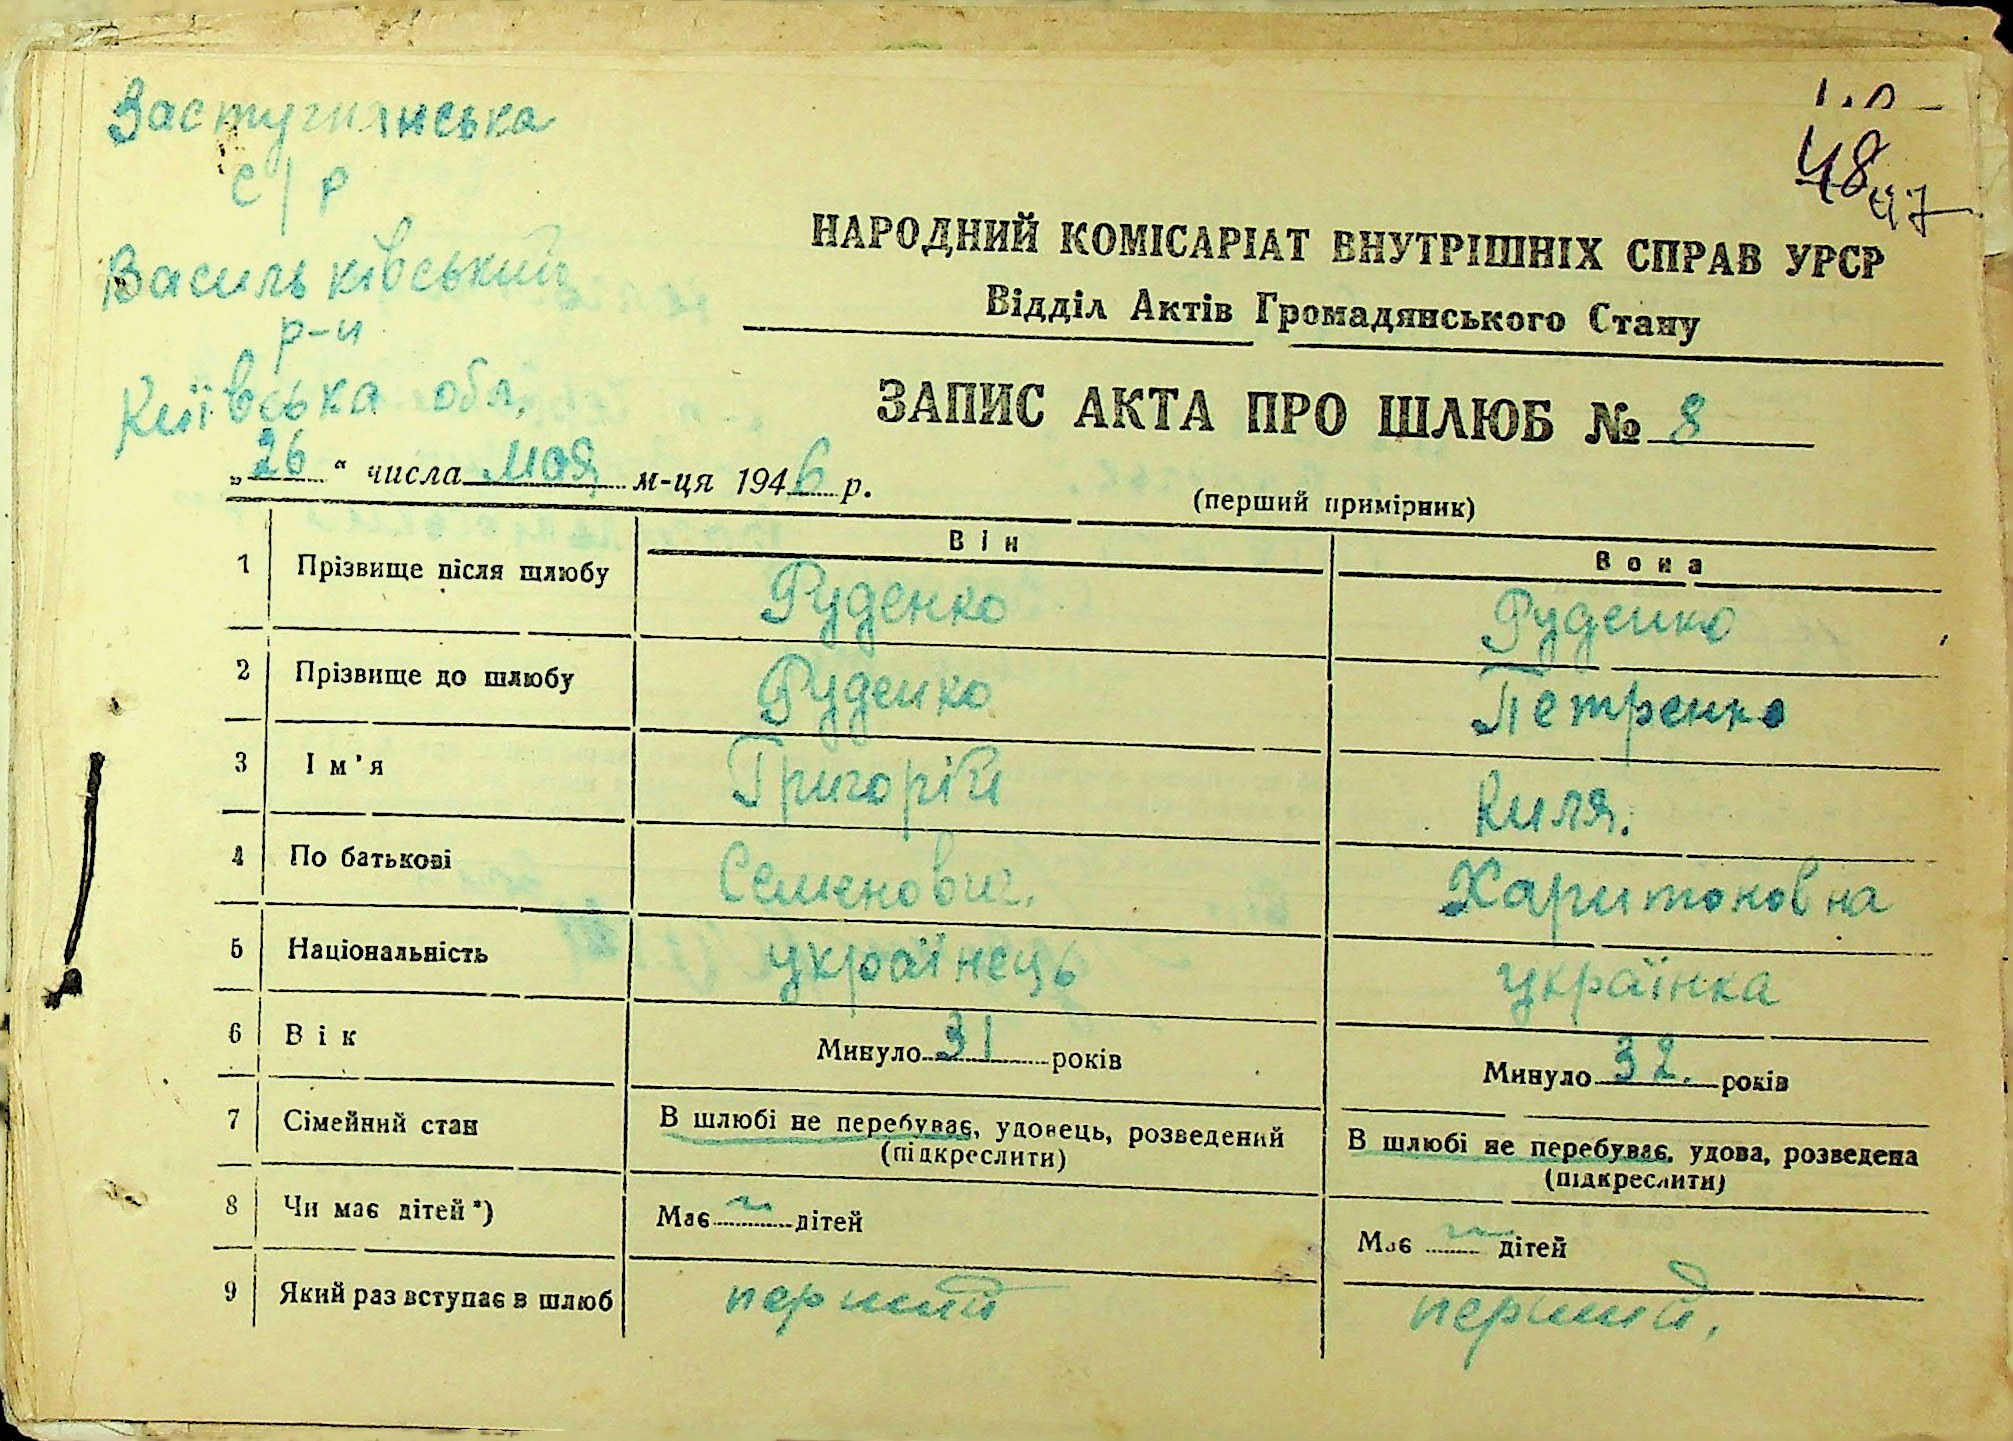 Застугнянська
с/р
Васильківський
р-н
Київська обл.
48
47
НАРОДНИЙ КОМІСАРІАТ ВНУТРІШНІХ СПРАВ УРСР
Відділ Актів Громадянського Стану
ЗАПИС АКТА ПРО ШЛЮБ № 8
„26“ числа мая м-ця 1946 р.
(перший примірник)
Він Вона
1 Прізвище після шлюбу Руденко Руденко
2 Прізвище до шлюбу Руденко Петренко
3 Ім'я Григорій Киля.
4 По батькові Семенович. Харитоновна
5 Національність українець українка
6 Вік Минуло 31 років Минуло 32. років
7 Сімейний стан В шлюбі не перебуває, удовець, розведений В шлюбі не перебуває, удова, розведена
(підкреслити) (підкреслити)
8 Чи має дітей*) Має дітей Має дітей
9 Який раз вступає в шлюб перший перший.